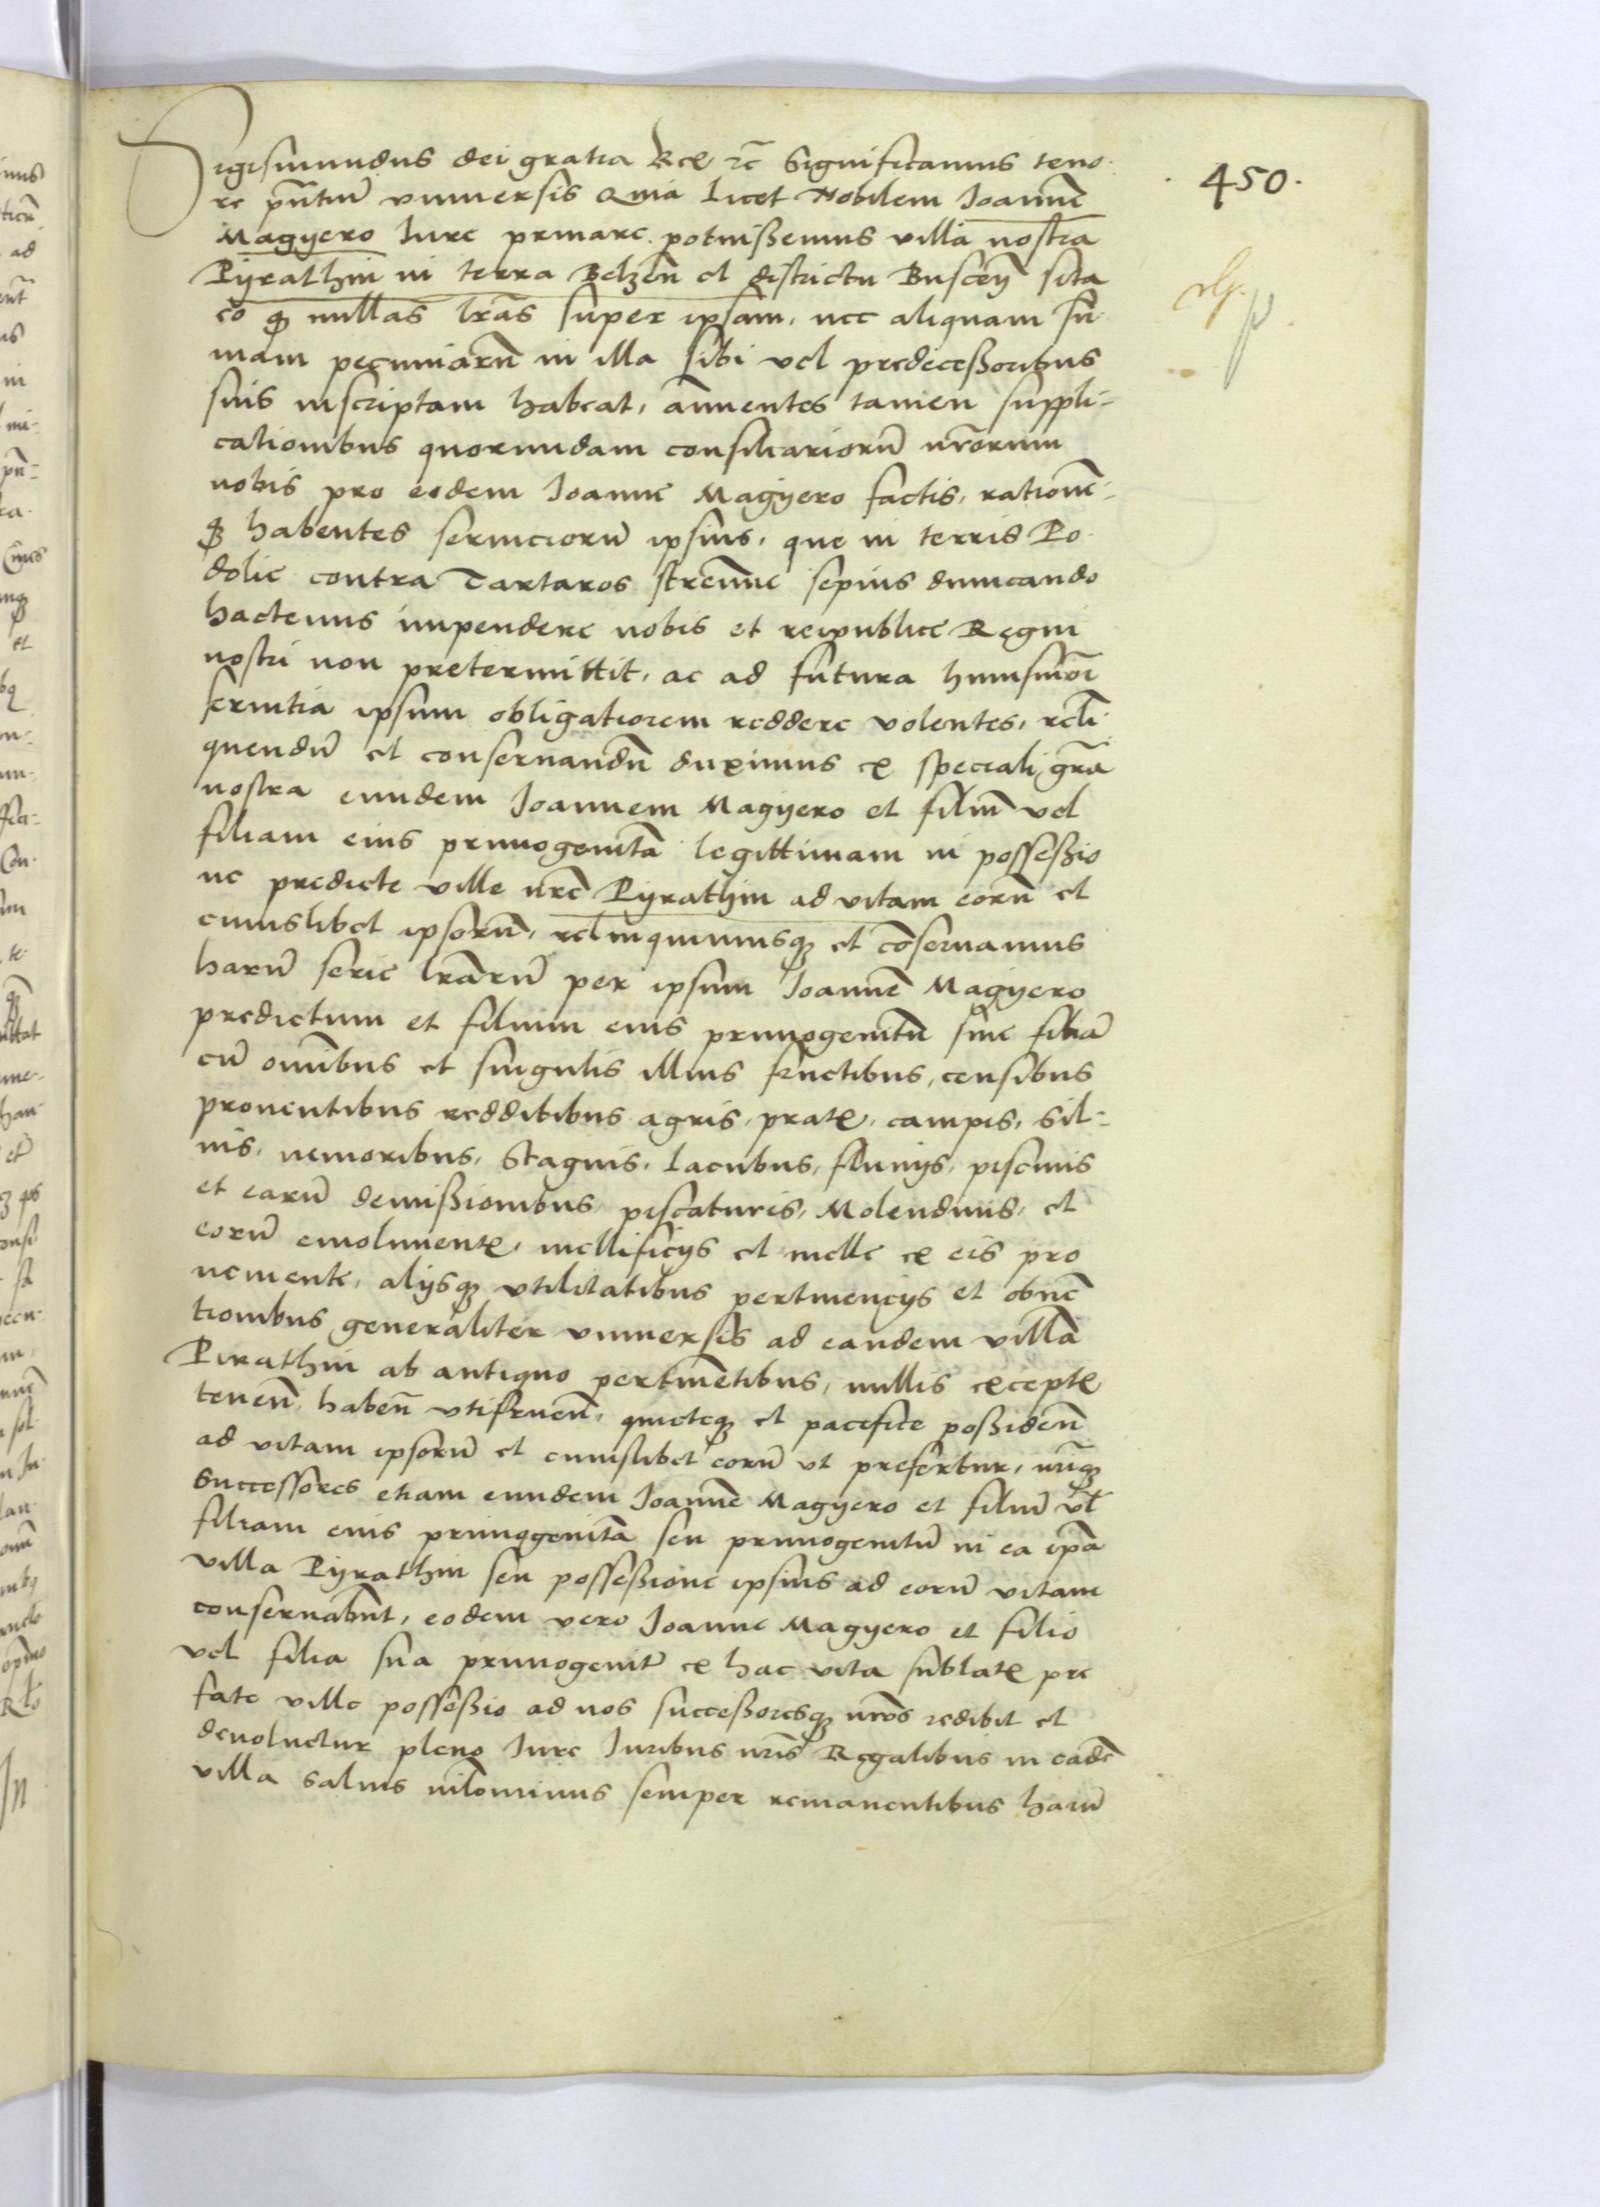 Sigismundus dei gratia Rex etc̃ Significamus teno
450.
re pñtiũ vniuersis Quia licet Nobilem Joannẽ
Magyero Jure priuare potuissemus villa nostra
Pyrathin in terra Belzeñ et districtu Busceñ sita
eo qͥ nullas lr̃as super ipsam, nec aliquam sũ
mam pecuniarũ in illa sibi vel predecessoribus
suis inscriptam habeat, annuentes tamen suppli-
cationibus quorundam consiliariorũ nr̃orum
nobis pro eodem Joanne Magyero factis, rationẽ-
qꝫ habentes seruiciorũ ipsius, que in terris Po
dolie contra Tartaros strenue sepius dimicando
hactenus impendere nobis et reipublice Regni
nostri non pretermittit, ac ad futura huiusmõi
seruitia ipsum obligatiorem reddere volentes, reli
quendũ et conseruandũ duximus ex speciali gr̃a
nostra eundem Joannem Magyero et filiũ vel
filiam eius primogenitã legittimam in possessio
ne predicte ville nr̃e Pyrathin ad vitam eorũ et
cuiuslibet ipsorũ, relinquimusqꝫ et cõseruamus
harũ serie lr̃arũ per ipsum Joannẽ Magyero
predictum et filium eius primogenitũ siue filiã
cũ omĩbus et singulis illius fructibus, censibus
prouentibus redditibus agris, pratꝭ, campis, sil-
uis, nemoribus, stagnis, lacubus, fluuijs, piscinis
et earũ demissionibus, piscaturis, Molendinis, et
eorũ emolumentꝭ, mellificijs et melle ex eis pro
ueniente, alijsqꝫ vtilitatibus pertinencijs et obuẽ
tionibus generaliter vniuersis ad eandem villã
Pirathin ab antiquo pertinẽtibus, nullis exceptꝭ
teneñ, habeñ vtifrueñ, quieteqꝫ et pacifice possideñ
ad vitam ipsorũ et cuiuslibet eorũ vt prefertur, nr̃iqꝫ
Successores etiam eundem Joannẽ Magyero et filiũ vl̃
filiam eius primogenitã seu primogenitũ in ea ip̃a
villa Pyrathin seu possessione ipsius ad eorũ vitam
conseruabũt, eodem vero Joanne Magyero et filio
vel filia sua primogenit̃ ex hac vita sublatꝭ pre
fate ville possessio ad nos successoresqꝫ nr̃os redibit et
deuoluetur pleno Jure Juribus nr̃is Regalibus in eadẽ
villa saluis nihilominus semper remanentibus harũ